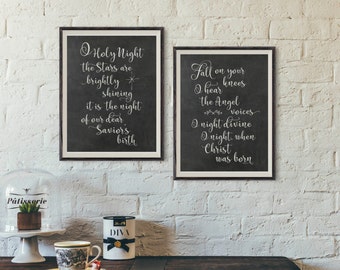 O Holy Night
the Stars are
brightly
shining
it is the night
of our dear
Saviors
birth
Fall on your
knees
O hear
the Angel
voices
O night divine
O night, when
Christ
was born
Pâtisserie
DIVA